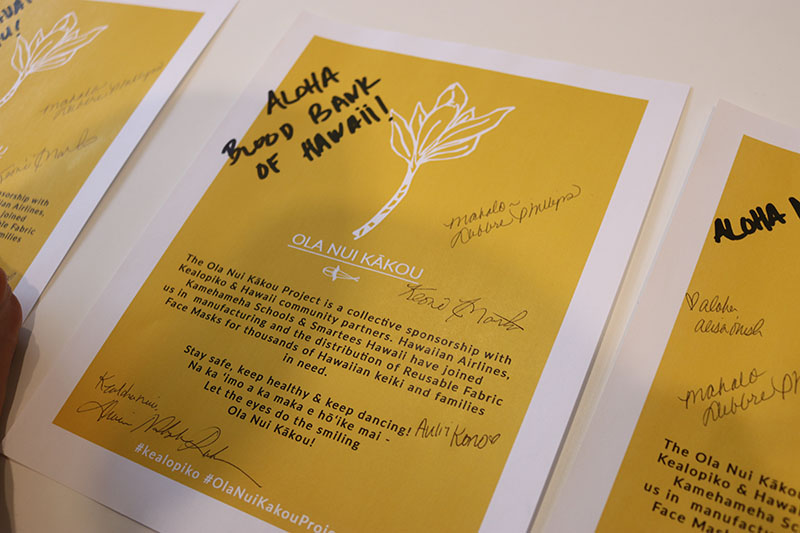 ALOHA
BLOOD BANK
OF HAWAII!
mahalo~
Debbie Phillips
OLA NUI KĀKOU
The Ola Nui Kākou Project is a collective sponsorship with
Kealopiko & Hawaii community partners. Hawaiian Airlines,
Kamehameha Schools & Smartees Hawaii have joined
us in manufacturing and the distribution of Reusable Fabric
Face Masks for thousands of Hawaiian keiki and families
in need.
Stay safe, keep healthy & keep dancing!
Na ka ʻimo a ka maka e hōʻike mai -
Let the eyes do the smiling
Ola Nui Kākou!
#kealopiko #OlaNuiKakouProj
mahalo
Debbie Phillips
sorship with
n Airlines,
joined
able Fabric
families
ALOHA
aloha
mahalo
Debbie
The Ola Nui Kāk
Kealopiko & Hawaii
Kamehameha
us in manufactur
Face Masks for